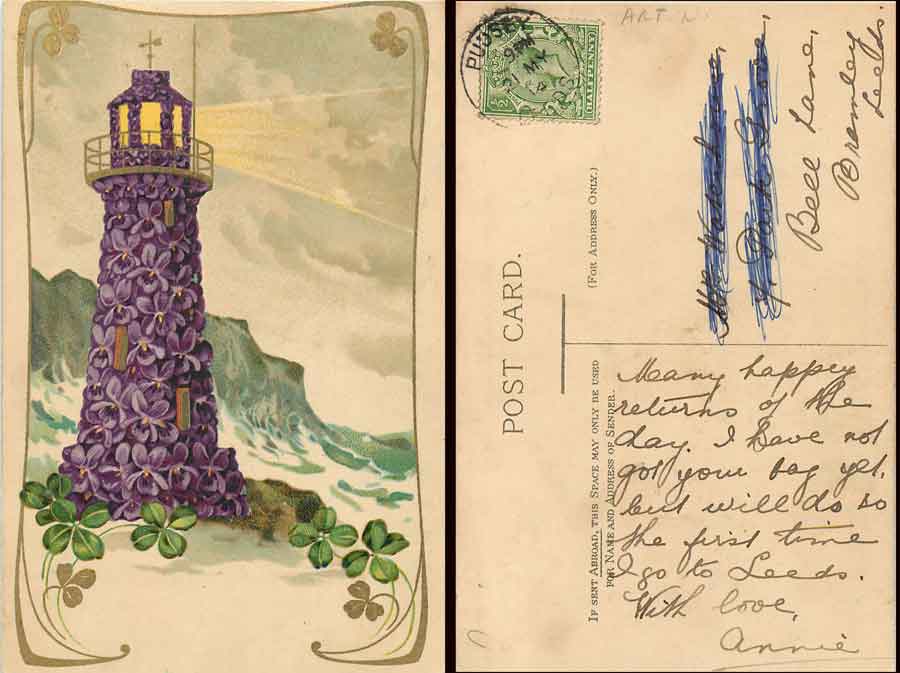 PUDSEY
9 PM
21 MY
HALFPENNY
ART N.
POST CARD.
(FOR ADDRESS ONLY.)
IF SENT ABROAD, THIS SPACE MAY ONLY BE USED
FOR NAME AND ADDRESS OF SENDER.
Bell Lane,
Bramley
Leeds.
Many happy
returns of the
day. I have not
got your bag yet,
but will do so
the first time
I go to Leeds.
With love,
Annie